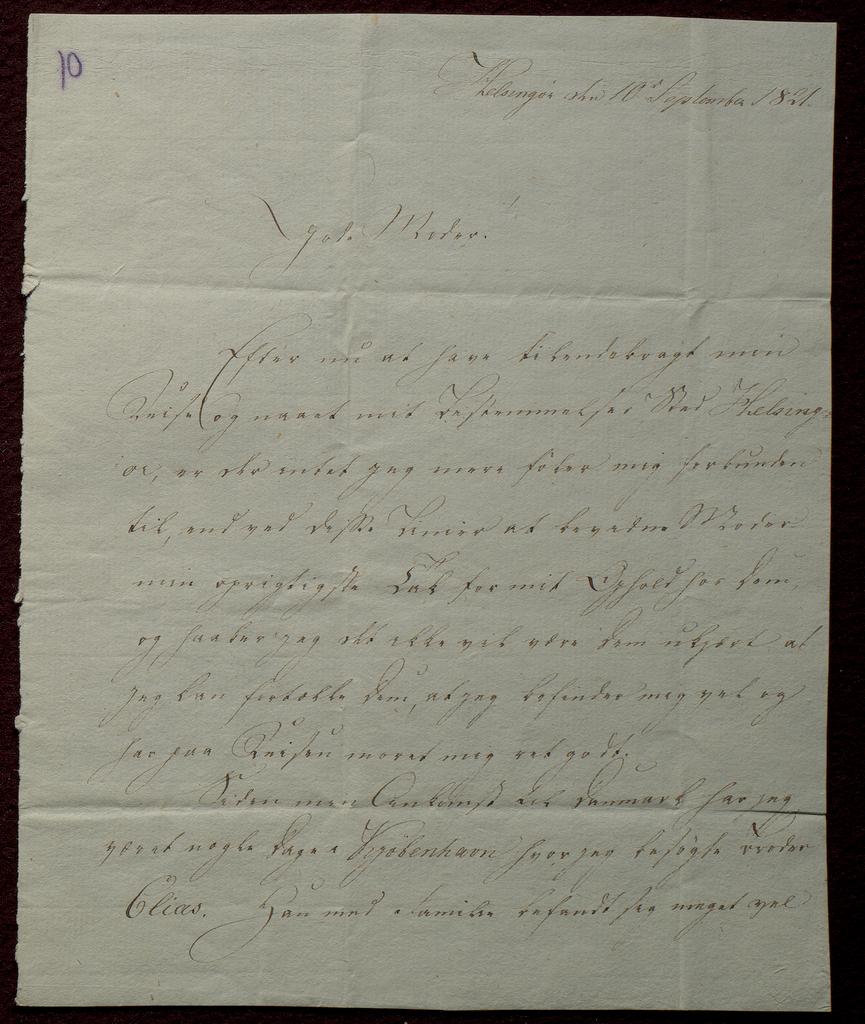 10
Helsingör den 10d September 1821.
Gode Moder!
Efter nu at have tilendebragt min
Reise og naaet mit Bestemmelses Sted Helsing-
ör, er der intet jeg mere föler mig forbunden
til, end ved disse Linier at bevidne Moder
min oprigtigste Tak for mit Ophold hos Dem,
og haaber jeg det ikke vil være Dem ukjært at
jeg kan fortælle Dem, at jeg befinder mig vel og
har paa Reisen moret mig ret godt.
Siden min Ankomst til Danmark har jeg
været nogle Dage i Kjøbenhavn hvor jeg besögte Broder
Elias. Han med Familie befandt sig meget vel